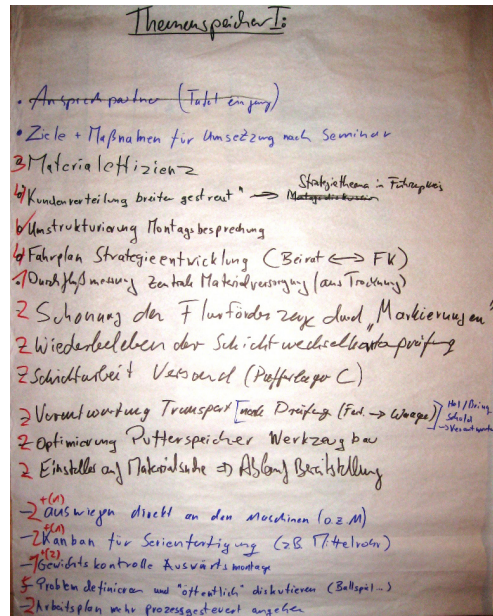 Themenspeicher I:
• Ansprechpartner (Tafel eingang)
• Ziele + Maßnahmen für Umsetzung nach Seminar
3 Materialeffizienz
4 Kundenverteilung breiter gestreut" → Strategiethema in Führungskreis
6 Umstrukturierung Montagsbesprechung
4 Fahrplan Strategieentwicklung (Beirat ↔ FK)
1 Durchflußmessung Zentrale Materialversorgung (aus Trocknung)
2 Schonung der Flurförderzeuge durch „Markierungen"
2 Wiederbeleben der Schichtwechselkartenprüfung
2 Schichtarbeit Versand (Pufferlager C)
2 Verantwortung Transport [nach Prüfung (Fert. → Waage)] Hol/Bring Schuld → Verantwort
2 Optimierung Pufferspeicher Werkzeugbau
2 Einsteller auf Materialsuche ⇒ Ablauf Bereitstellung
+(1)
– 2 auswiegen direkt an den Maschinen (o.z.M)
+(1)
– 2 Kanban für Serienfertigung (zB Mittelrohr)
+(2)
– 1 Gewichtskontrolle Auswärtsmontage
– 5 Problem definieren und "öffentlich" diskutieren (Ballspiel...)
– 2 Arbeitsplan mehr prozessgesteuert angehen